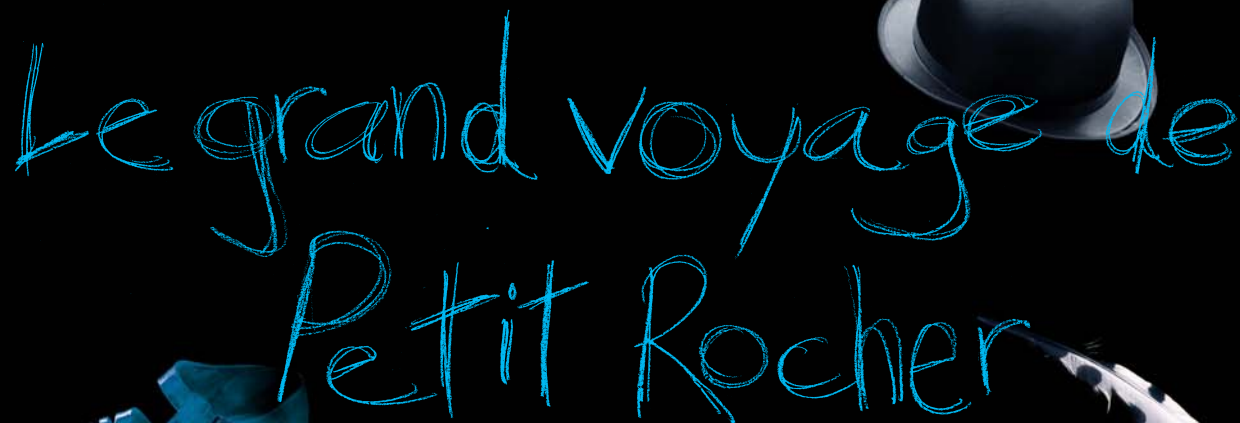 Le grand voyage de
Petit Rocher